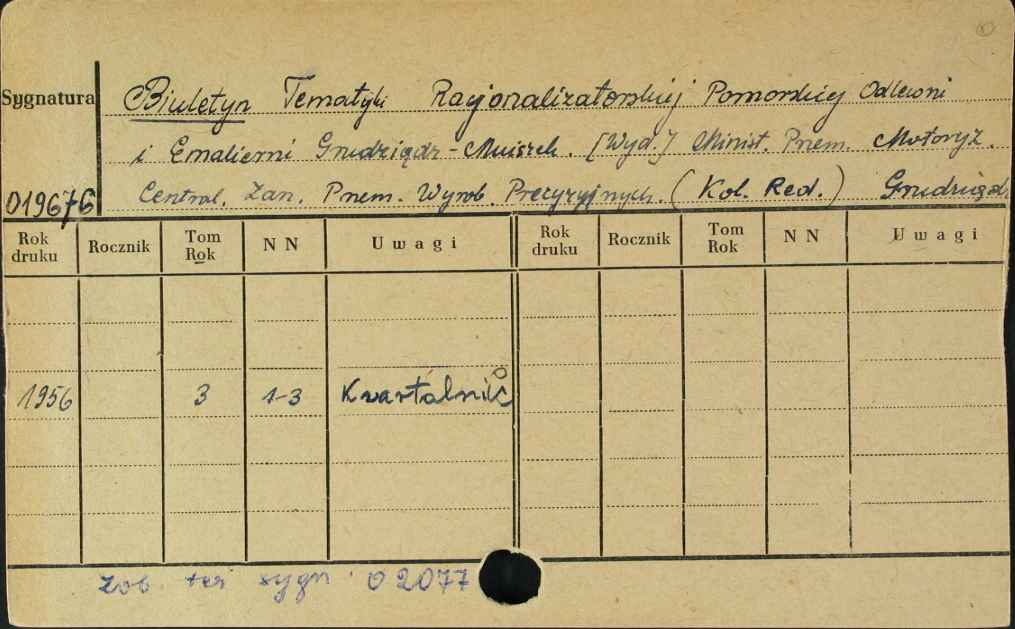 Sygnatura
Biuletyn Tematyki Racjonalizatorskiej Pomorskiej Odlewni
i Emalierni Grudziądz-Mniszek. [Wyd.] Minist. Przem. Motoryz.
019676
Central. Zarz. Przem. Wyrob. Precyzyjnych. (Kol. Red.) Grudziądz
Rok druku Rocznik Tom Rok N N Uwagi Rok druku Rocznik Tom Rok N N Uwagi
1956 3 1-3 Kwartalnik
zob. też sygn. 02077